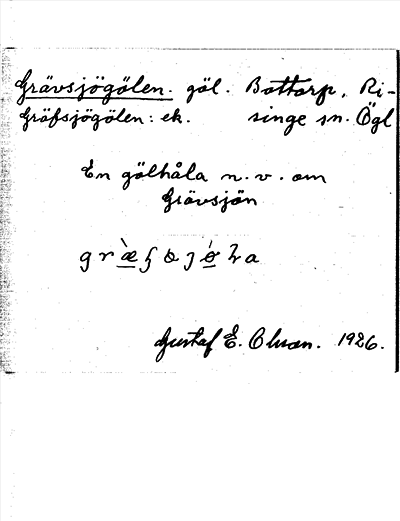 Grävsjögölen. göl. Bottorp, Ri-
Gräfsjögölen: ek. singe sn. Ögl
En gölhåla n. v. om
Grävsjön
Gustaf E. Olsson. 1926.